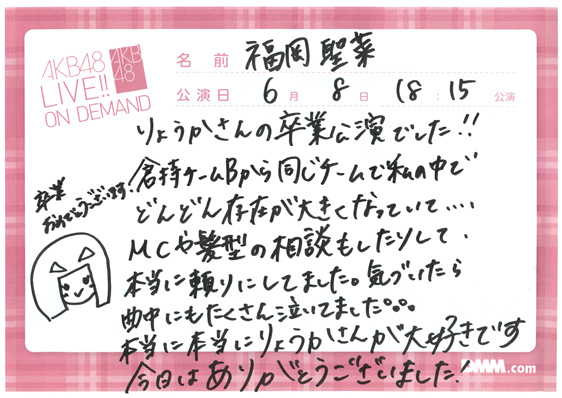 AKB48
LIVE!!
ON DEMAND
AKB
48
名前 福岡聖菜
公演日 6月 8日 18:15 公演
りょうかさんの卒業公演でした!!
倉持チームBから同じチームで私の中で
どんどん存在が大きくなっていて....
MCや髪型の相談もしたりして、
本当に頼りにしてました。気づいたら
曲中にもたくさん泣いてました。。。
本当に本当にりょうかさんが大好きです
今日はありがとうございました!
卒業
おめでとうございます!
DMM.com